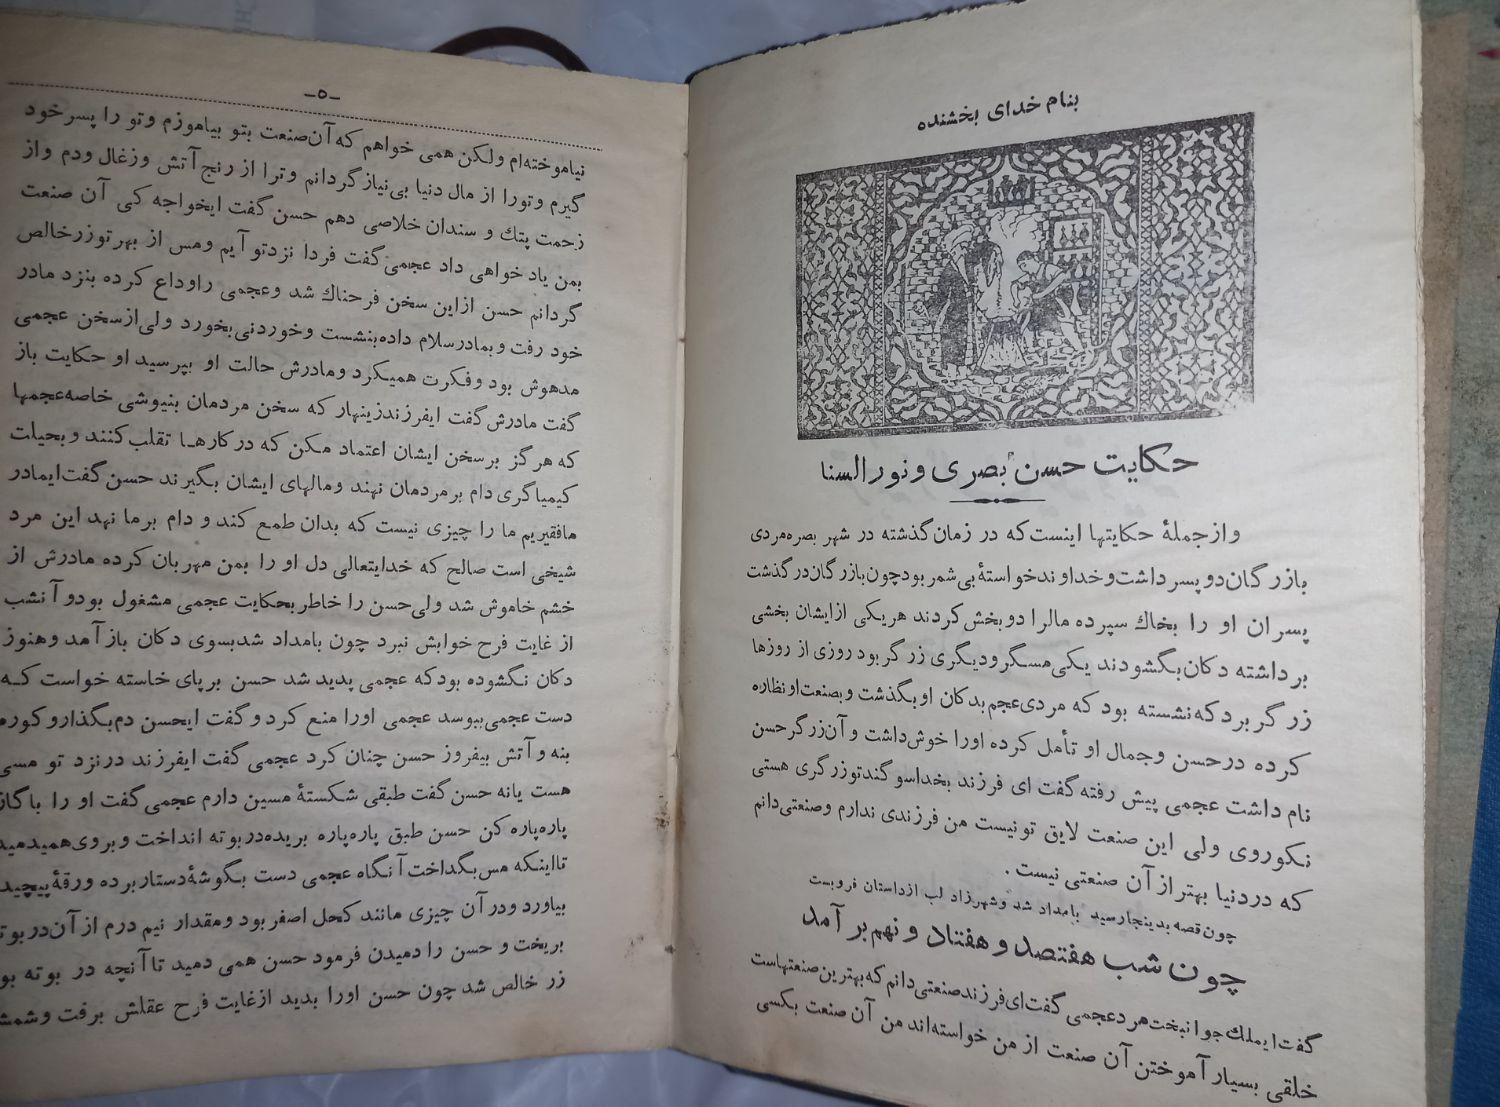 بنام خدای بخشنده
حکایت حسن بصری و نور السنا
و از جملهٔ حکایتها اینست که در زمان گذشته در شهر بصره مردی
بازرگان دو پسر داشت و خداوند خواستهٔ بی شمر بود چون بازرگان در گذشت
پسران او را بخاك سپرده مالرا دو بخش کردند هر یکی از ایشان بخشی
برداشته دکان بگشودند یکی مسگر و دیگری زرگر بود روزی از روزها
زرگر بر دکه نشسته بود که مردی عجم بدکان او بگذشت و بصنعت او نظاره
کرده در حسن و جمال او تأمل کرده او را خوش داشت و آن زرگر حسن
نام داشت عجمی پیش رفته گفت ای فرزند بخدا سوگند تو زرگری هستی
نکوروی ولی این صنعت لایق تو نیست من فرزندی ندارم و صنعتی دانم
که در دنیا بهتر از آن صنعتی نیست .
چون قصه بدینجا رسید بامداد شد و شهرزاد لب از داستان فروبست
چون شب هفتصد و هفتاد و نهم بر آمد
گفت ایملك جوانبخت مرد عجمی گفت ای فرزند صنعتی دانم که بهترین صنعتهاست
خلقی بسیار آموختن آن صنعت از من خواسته‌اند من آن صنعت بکسی
-٥-
نیاموخته‌ام ولکن همی خواهم که آن صنعت بتو بیاموزم و تو را پسر خود
گیرم و تو را از مال دنیا بی نیاز گردانم و ترا از رنج آتش و زغال و دم و از
زحمت پتك و سندان خلاصی دهم حسن گفت ایخواجه کی آن صنعت
بمن یاد خواهی داد عجمی گفت فردا نزد تو آیم و مس از بهر تو زر خالص
گردانم حسن از این سخن فرحناك شد و عجمی را وداع کرده بنزد مادر
خود رفت و بمادر سلام داده بنشست و خوردنی بخورد ولی از سخن عجمی
مدهوش بود و فکرت همیکرد و مادرش حالت او بپرسید او حکایت باز
گفت مادرش گفت ایفرزند زینهار که سخن مردمان بنیوشی خاصه عجمها
که هرگز بر سخن ایشان اعتماد مکن که در کارها تقلب کنند و بحیلت
کیمیاگری دام بر مردمان نهند و مالهای ایشان بگیرند حسن گفت ایمادر
ما فقیریم ما را چیزی نیست که بدان طمع کند و دام بر ما نهد این مرد
شیخی است صالح که خدایتعالی دل او را بمن مهربان کرده مادرش از
خشم خاموش شد ولی حسن را خاطر بحکایت عجمی مشغول بود و آنشب
از غایت فرح خوابش نبرد چون بامداد شد بسوی دکان باز آمد و هنوز
دکان نگشوده بود که عجمی پدید شد حسن بر پای خاسته خواست که
دست عجمی ببوسد عجمی او را منع کرد و گفت ایحسن دم بگذار و کوره
بنه و آتش بیفروز حسن چنان کرد عجمی گفت ایفرزند در نزد تو مسی
هست یا نه حسن گفت طبقی شکستهٔ مسین دارم عجمی گفت او را با گاز
پاره پاره کن حسن طبق پاره پاره بریده در بوته انداخت و بروی همیدمید
تا اینکه مس بگداخت آنگاه عجمی دست بگوشهٔ دستار برده ورقهٔ پیچیده
بیاورد و در آن چیزی مانند کحل اصفر بود و مقدار نیم درم از آن در بوته
بریخت و حسن را دمیدن فرمود حسن همی دمید تا آنچه در بوته بو
زر خالص شد چون حسن او را بدید از غایت فرح عقلش برفت و شمش